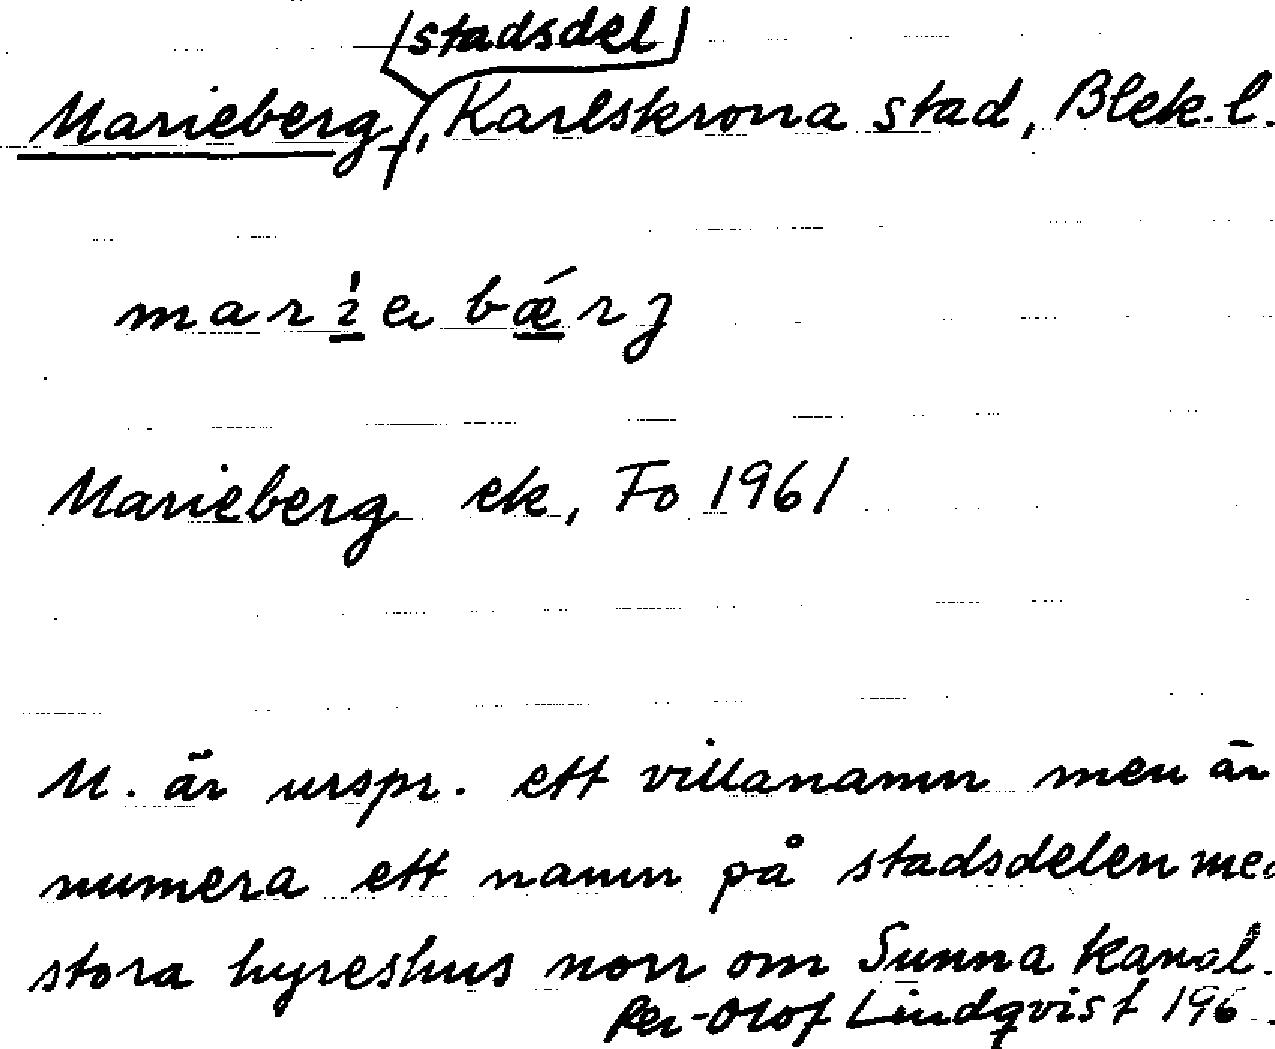 stadsdel
Marieberg, Karlskrona stad, Blek.l.
marie bǽrj
Marieberg ek, Fo 1961
M. är urspr. ett villanamn men är
numera ett namn på stadsdelen med
stora hyreshus norr om Sunna kanal.
Per-Olof Lindqvist 196